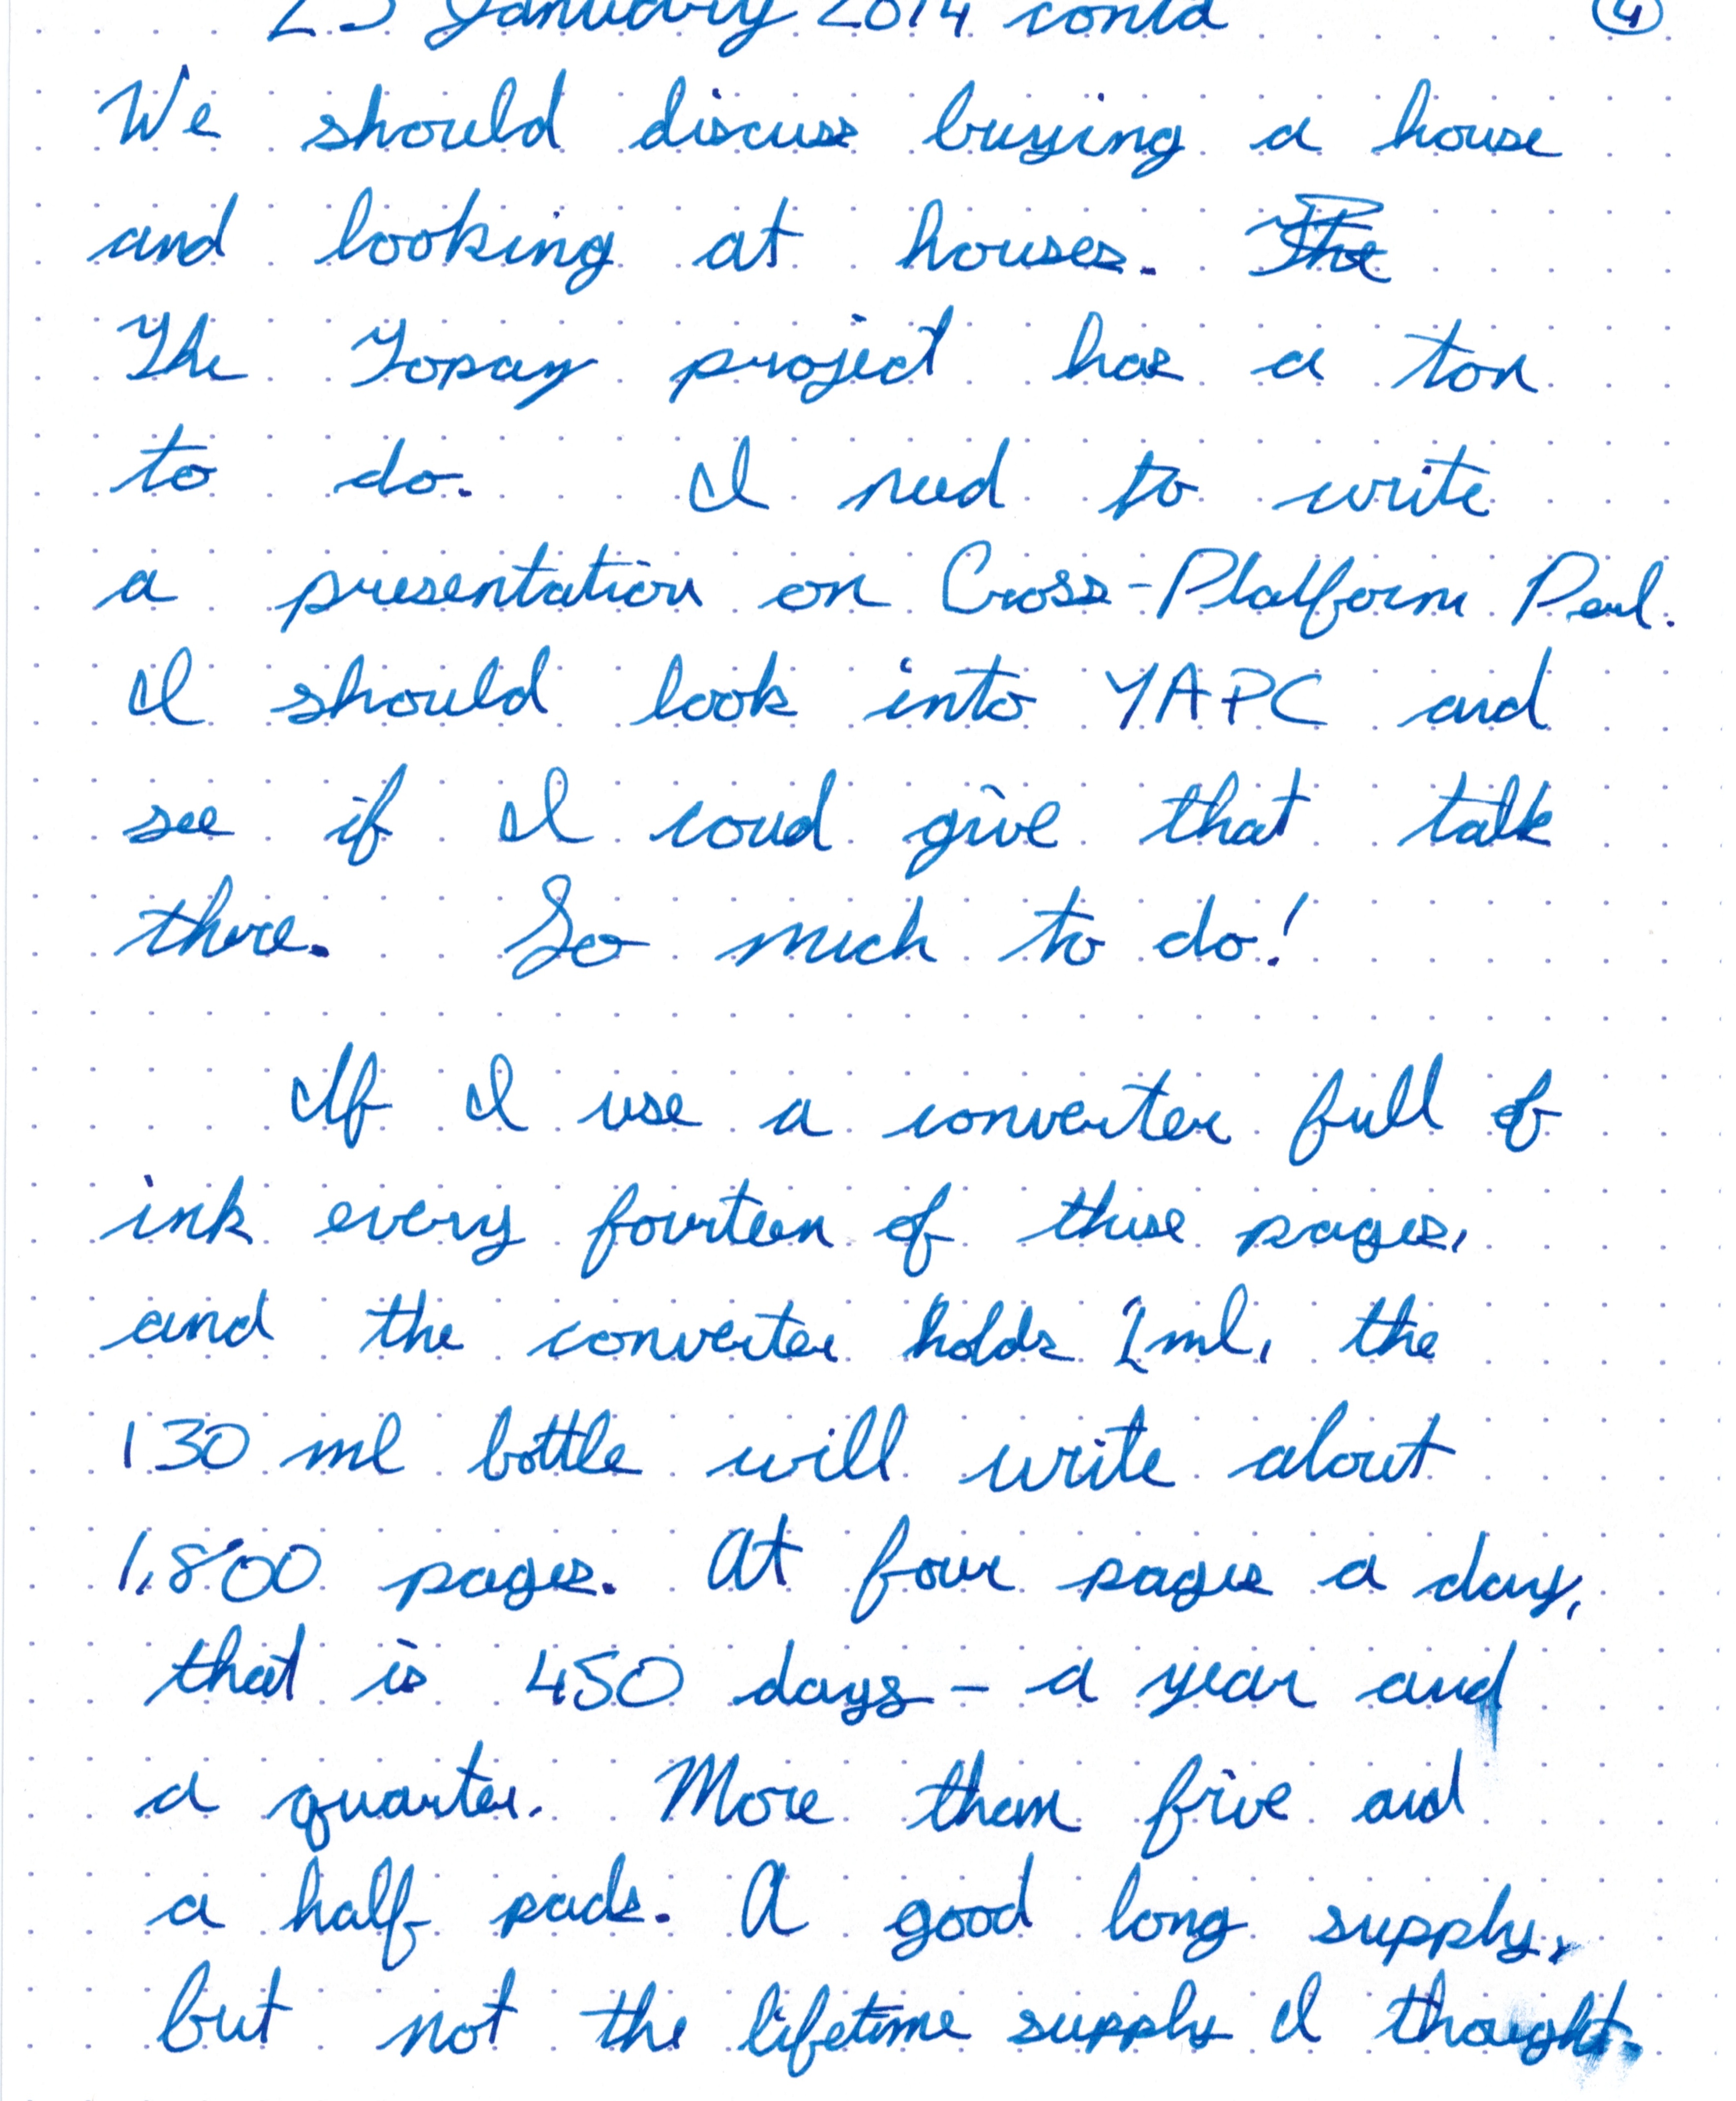 23 January 2014 contd 4
We should discuss buying a house
and looking at houses. The
The Topaz project has a ton
to do. I need to write
a presentation on Cross-Platform Perl.
I should look into YAPC and
see if I coud give that talk
there. So much to do!
If I use a converter full of
ink every fourteen of these pages,
and the converter holds 1ml, the
130 ml bottle will write about
1,800 pages. At four pages a day,
that is 450 days - a year and
a quarter. More than five and
a half pads. A good long supply,
but not the lifetime supply I thought.